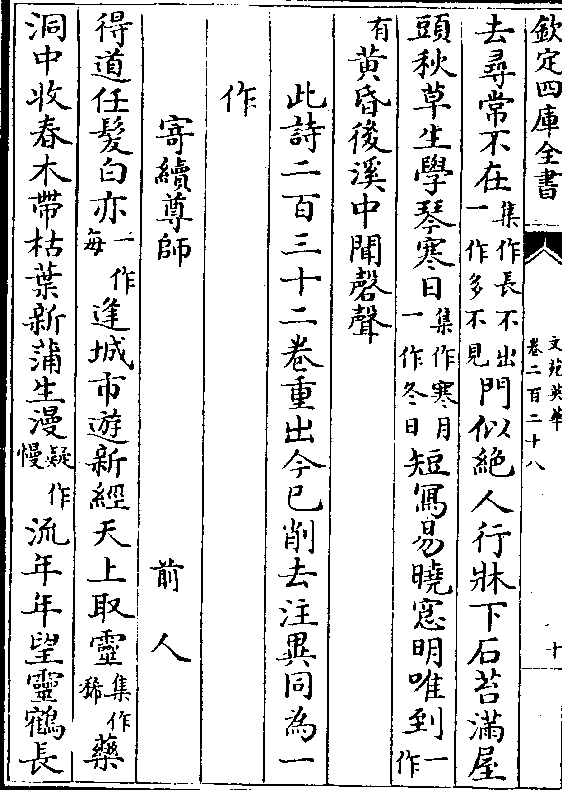 欽定四庫全書
文苑英華
卷二百二十八
十
去尋常不在集作長不出一作多不見門似絶人行牀下石苔滿屋
頭秋草生學琴寒日集作寒月一作冬日短冩易曉窓明唯到一作
有黄昏後溪中聞磬聲
此詩二百三十二卷重出今已削去注異同為一
作
寄續尊師 前人
得道任髮白亦一作每逢城市遊新經天上取靈集作稀藥
洞中收春木帶枯葉新蒲生漫疑作慢流年年望靈鶴長